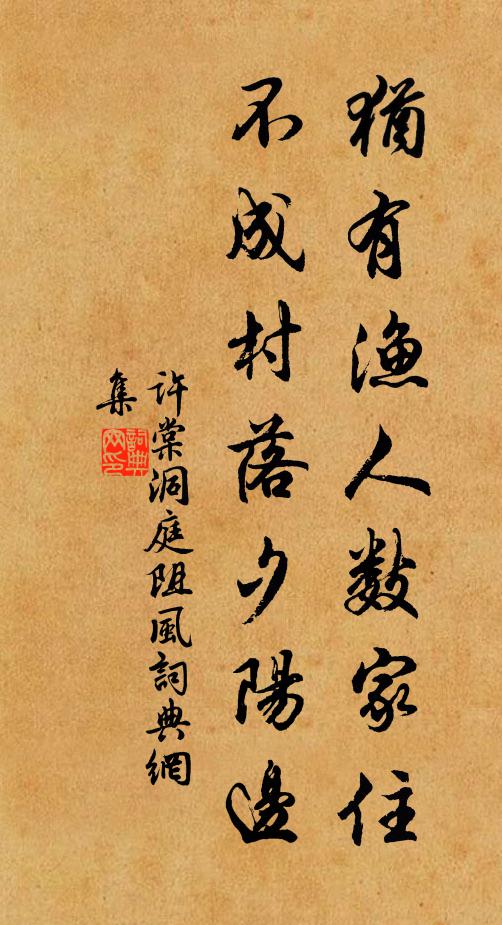 猶有漁人數家住
不成村落夕陽邊
許棠洞庭阻風詞典網
集
詞典
网印